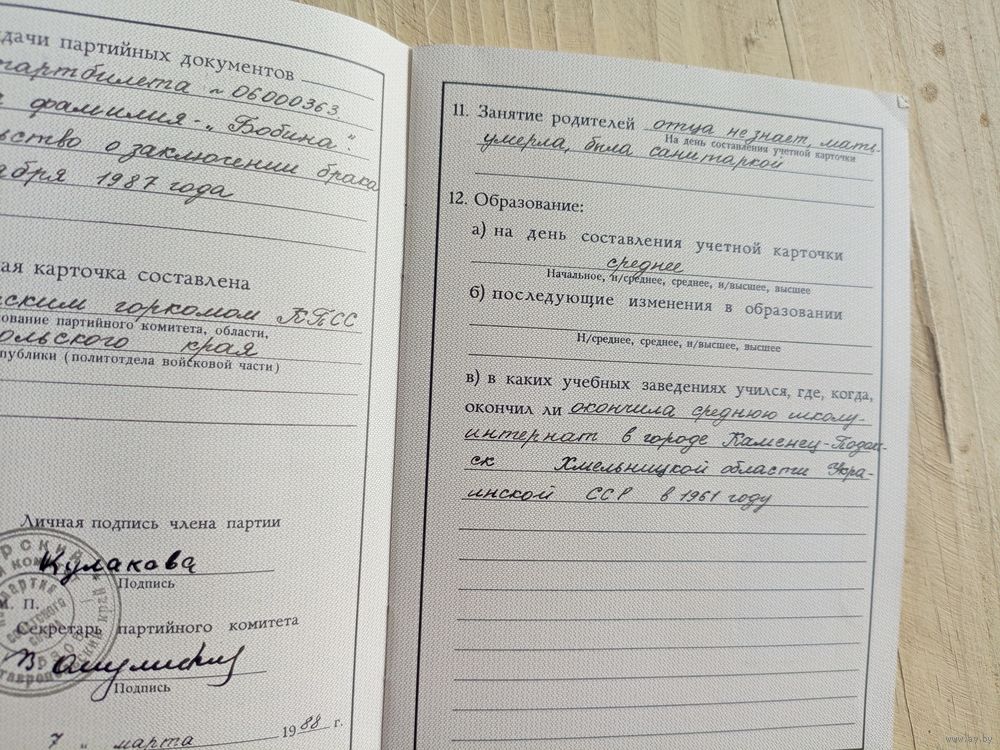 дачи партийных документов
партбилета № 06000363.
фамилия - „Бобина".
ьство о заключении брака
абря 1987 года
ая карточка составлена
ским горкомом КПСС
ование партийного комитета, области,
ольского края
публики (политотдела войсковой части)
Личная подпись члена партии
Кулакова
Подпись
М. П.
Секретарь партийного комитета
Подпись
7 " марта 1988 г.
11. Занятие родителей отца не знает, мать
На день составления учетной карточки
умерла, была санитаркой
12. Образование:
а) на день составления учетной карточки
среднее
Начальное, н/среднее, среднее, н/высшее, высшее
б) последующие изменения в образовании
Н/среднее, среднее, н/высшее, высшее
в) в каких учебных заведениях учился, где, когда,
окончил ли окончила среднюю школу-
интернат в городе Каменец-Подол-
ск Хмельницкой области Укра-
инской ССР в 1961 году
www.ay.by